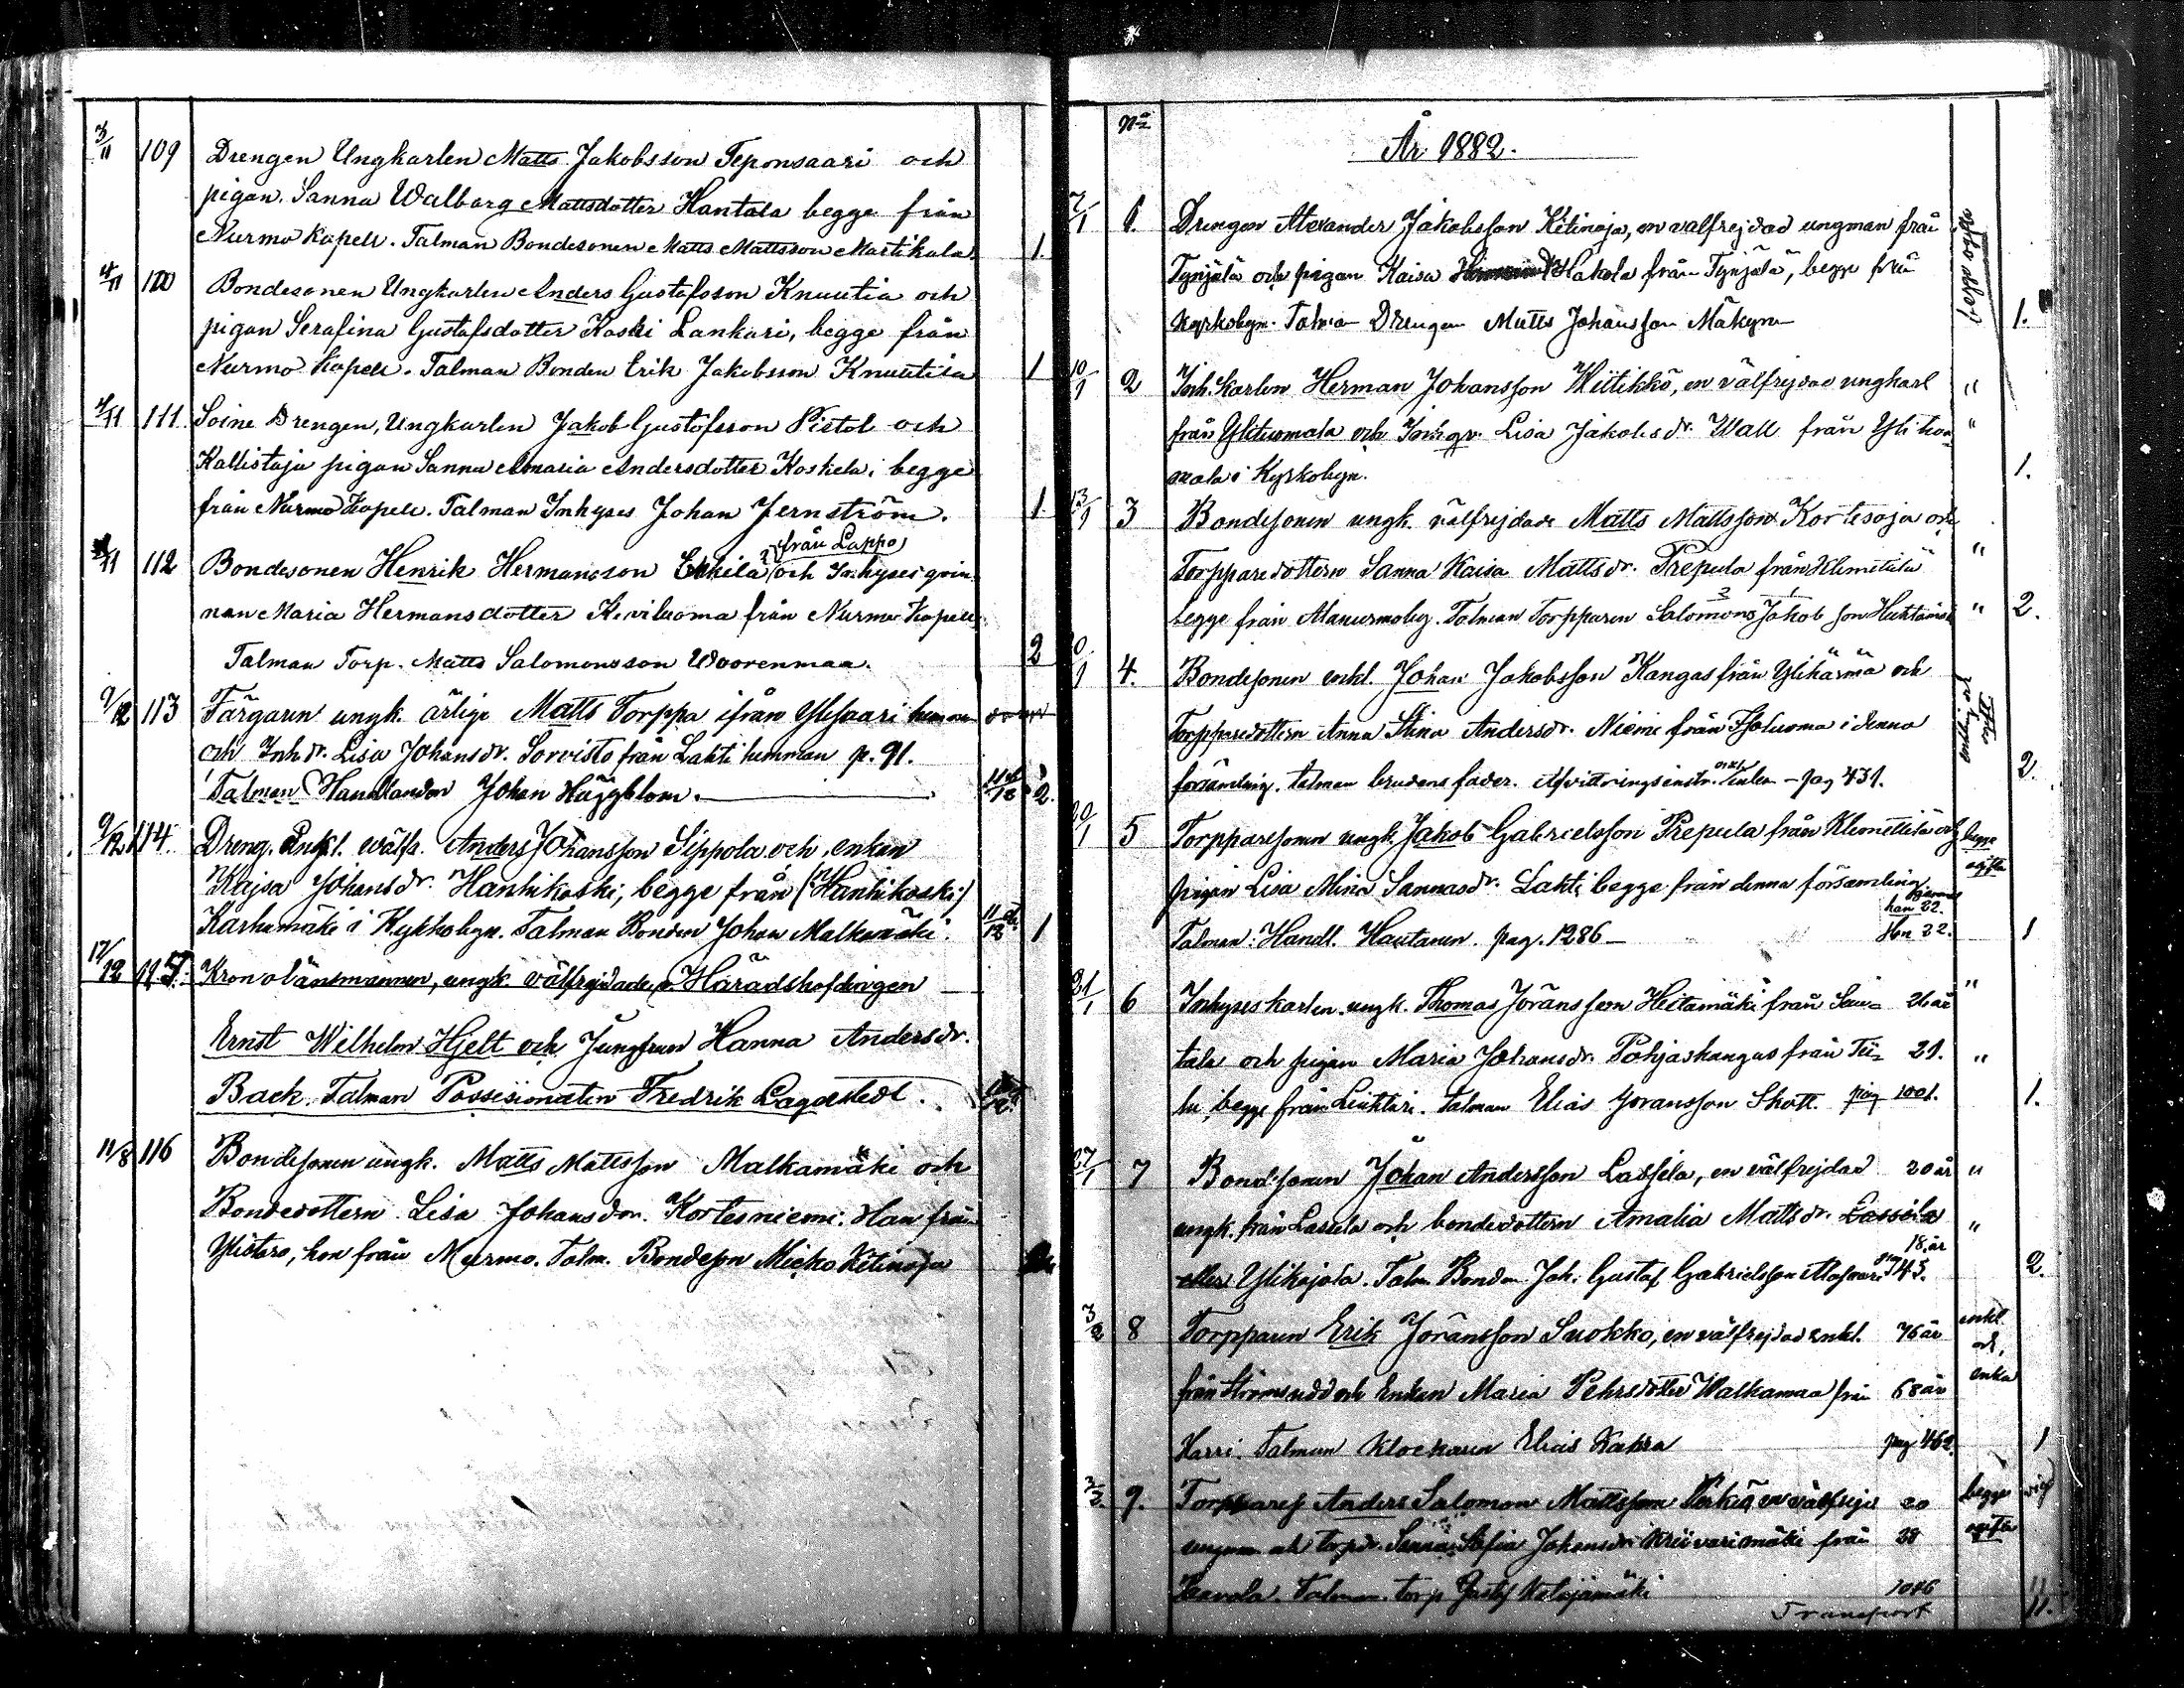 3/11 109 Drengen Ungkarlen Matts Jakobsson Teponsaari och
pigan Sanna Walborg Mattsdotter Hantala begge från
Nurmo Kapell. Talman Bondesonen Matts Mattsson Martikala. 1.
4/11 110 Bondesonen Ungkarlen Anders Gustafsson Knuutia och
pigan Serafina Gustafsdotter Koski Lankari, begge från
Nurmo Kapell. Talman Bonden Erik Jakobsson Knuutila 1
4/11 111 Soine Drengen, Ungkarlen Jakob Gustafsson Pistol och
Kallistaja pigan Sanna Maria Andersdotter Koskela, begge
från Nurmo Kapell. Talman Inhyses Johan Jernström. 1.
från Lappo
/11 112 Bondesonen Henrik Hermansson Erkilä och Inhyses qvin
nan Maria Hermansdotter Keviluoma från Nurmo Kapell,
Talman Torp. Matts Salomonsson Woorenmaa. 2
9/12 113 Färgaren ungk. ärlige Matts Torppa ifrån Ylisaari
och Inh dr. Lisa Johansdr. Sorvisto från Lahti hemman p. 91.
Talman Handlanden Johan Häggblom. 2.
9/12 114. Dreng. Enkl. välfr. Anders Johansson Sippola och enkan
Kajsa Johansdr. Hanhikoski, begge från (Hanhikoski)
Karhumäki i Kyrkobyn. Talman Bonden Johan Malkamäki. 11/12 1
12/12 115. Kronolänsmannen, ungk. välfrejdade, v. Häradshöfdingen
Ernst Wilhelm Hjelt och Jungfrun Hanna Andersdr.
Back. Talman Possesionaten Fredrik Lagerstedt.
11/8 116 Bondesonen ungk. Matts Mattsson Malkamäki och
Bondedottern Lisa Johansdr. Kortesniemi. Han från
Ylistaro, hon från Nurmo. Talm. Bondesn Micko Kitinoja
No
År 1882.
7/1 1. Drengen Alexander Jakobsson Kitinoja, en välfrejdad ungman från
Tynjälä och pigan Kaisa Hakola från Tynjälä, begge från
Kyrkobyn. Talman Drengen Matts Johansson Mäkynen 1.
10/1 2 Inh. Karlen Herman Johansson Wiitikkö, en välfrejdad ungkarl "
från Ylituomala och Inhqv. Lisa Jakobsdr. Wall från Ylituo "
mala i Kyrkobyn. 1.
13/1 3 Bondesonen ungk. välfrejdade Matts Mattsson Kortesoja och
Torpparedottern Sanna Kaisa Mattsdr. Prepula från Klemetilä "
begge från Alanurmoby. Talman Torpparen Salomons Jakob son Huhtamäki " 2.
20/1 4. Bondesonen enkl. Johan Jakobsson Kangas från Ylihärmä och
Torpparedottern Anna Stina Andersdr. Niemi från Isoluoma i denna
församling. Talman brudens fader. Afvittringsinstr. - pag 431. 2.
20/1 5 Torpparesonen ungk. Jakob Gabrielsson Prepula från Klemettilä och begge
pigan Lisa Mina Sannasdr. Lahti begge från denna församling ogifta
han 22.
Talman: Handl. Hautanen. pag. 1286 Hon 22. 1
21/1 6 Inhyseskarlen ungk. Thomas Jöransson Hietamäki från Sau= 26 år "
tala och pigan Maria Johansdr. Pohjaskangas från Tii= 21. "
lu, begge från Liuhtari. Talman Elias Göransson Skott. pag 1001. 1.
27/1 7 Bondesonen Johan Andersson Lassila, en välfrejdad 20 år "
ungk. från Lassila och bondedottern Amalia Mattsdr. Lassila "
18 år
eller Ylikojola. Talm Bonden Joh: Gustaf Gabrielsson Alasaari pag 743. 2.
3/2 8 Torpparen Erik Jöransson Suokko, en välfrejdad enkl. 76 år enkl
och
från Strömsudd och Enkan Maria Pehrsdotter Walkamaa från 68 år enka
Harri. Talman Klockaren Elias Kahra pag 462. 1
3/2 9. Torppares Anders Salomon Mattsson Perkiö, en välfrejd 20 begge
ungman och torpdr. Sanna Sofia Johansdr Kriivarimäki från 28 ogifta
Haavola. Talman. torp Gustaf Katajamäki 1086
Transport 11.